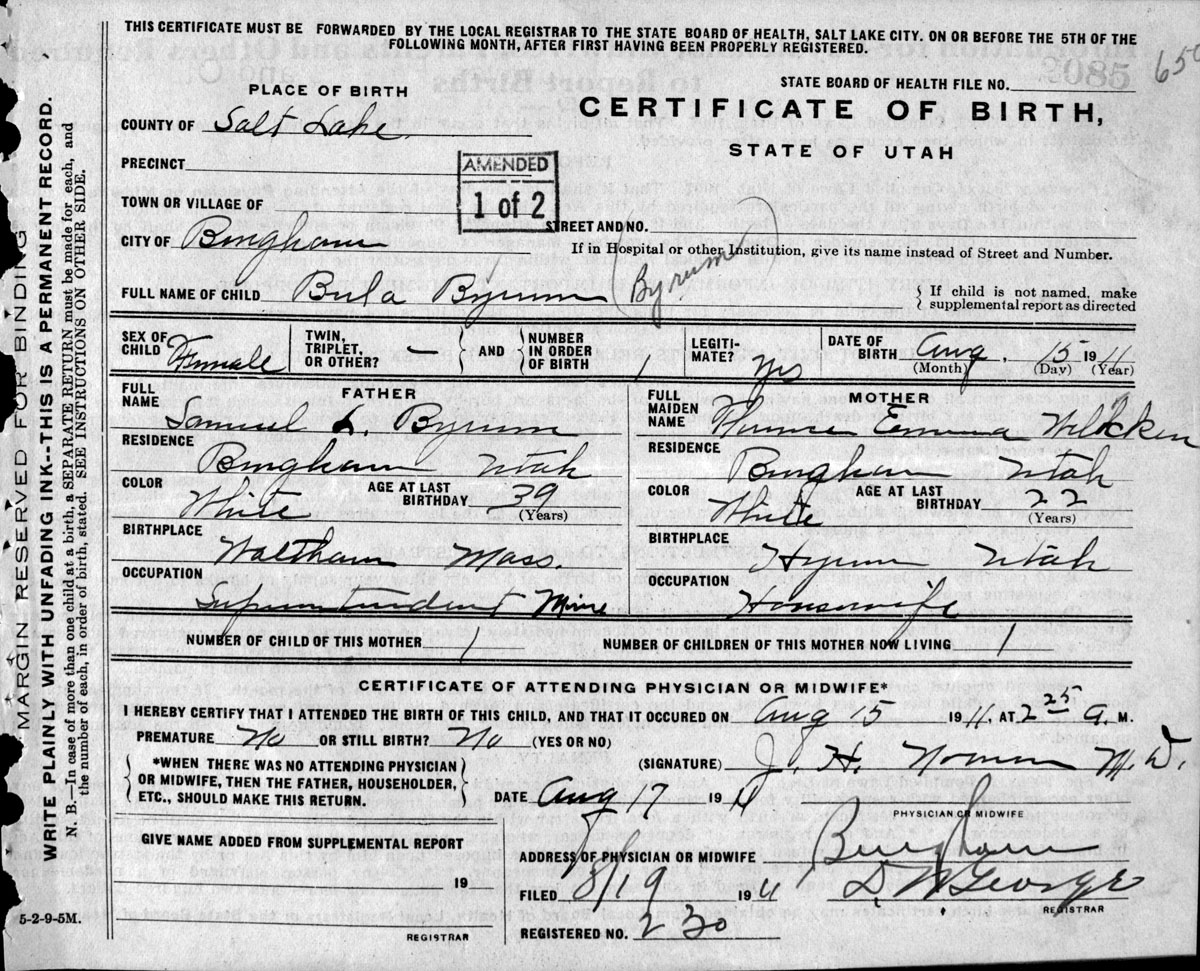 THIS CERTIFICATE MUST BE FORWARDED BY THE LOCAL REGISTRAR TO THE STATE BOARD OF HEALTH, SALT LAKE CITY. ON OR BEFORE THE 5TH OF THE
FOLLOWING MONTH, AFTER FIRST HAVING BEEN PROPERLY REGISTERED.
650
STATE BOARD OF HEALTH FILE NO.
PLACE OF BIRTH
CERTIFICATE OF BIRTH,
STATE OF UTAH
COUNTY OF Salt Lake
PRECINCT
AMENDED
1 of 2
TOWN OR VILLAGE OF
STREET AND NO.
CITY OF Bingham
If in Hospital or other Institution, give its name instead of Street and Number.
FULL NAME OF CHILD Bula Byrum (Byrum)
If child is not named, make
supplemental report as directed
SEX OF CHILD Female
TWIN, TRIPLET, OR OTHER? —
AND
NUMBER IN ORDER OF BIRTH 1
LEGITI-MATE? Yes
DATE OF BIRTH Aug. 15 1911
(Month) (Day) (Year)
FATHER
FULL NAME Samuel L. Byrum
RESIDENCE Bingham Utah
COLOR White
AGE AT LAST BIRTHDAY 39 (Years)
BIRTHPLACE Waltham Mass.
OCCUPATION Superintendent Mine
MOTHER
FULL MAIDEN NAME Emma
RESIDENCE Bingham Utah
COLOR White
AGE AT LAST BIRTHDAY 22 (Years)
BIRTHPLACE Hyrum Utah
OCCUPATION Housewife
NUMBER OF CHILD OF THIS MOTHER 1
NUMBER OF CHILDREN OF THIS MOTHER NOW LIVING 1
CERTIFICATE OF ATTENDING PHYSICIAN OR MIDWIFE*
I HEREBY CERTIFY THAT I ATTENDED THE BIRTH OF THIS CHILD, AND THAT IT OCCURED ON Aug 15 1911, AT 2 25 A. M.
PREMATURE No OR STILL BIRTH? No (YES OR NO)
*WHEN THERE WAS NO ATTENDING PHYSICIAN
OR MIDWIFE, THEN THE FATHER, HOUSEHOLDER,
ETC., SHOULD MAKE THIS RETURN.
(SIGNATURE) J. H. M.D.
PHYSICIAN OR MIDWIFE
DATE Aug 17 1911
GIVE NAME ADDED FROM SUPPLEMENTAL REPORT
19
REGISTRAR
ADDRESS OF PHYSICIAN OR MIDWIFE Bingham
FILED 8/19 1911 D. W. George
REGISTRAR
REGISTERED NO. 230
5-2-9-5M.
MARGIN RESERVED FOR BINDING
WRITE PLAINLY WITH UNFADING INK--THIS IS A PERMANENT RECORD.
N. B.—In case of more than one child at a birth, a SEPARATE RETURN must be made for each, and
the number of each, in order of birth, stated. SEE INSTRUCTIONS ON OTHER SIDE.